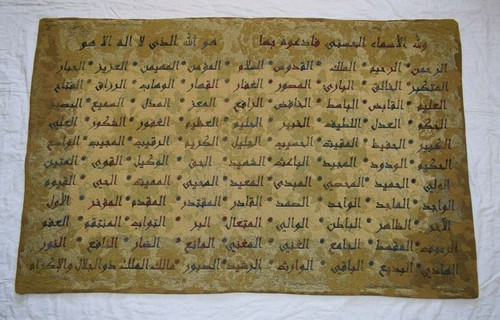 ولله الأسماء الحسنى فادعوه بها هو الله الذي لا اله الا هو
الرحمن • الرحيم • الملك • القدوس • السلام • المؤمن • المهيمن • العزيز • الجبار
المتكبر • الخالق • البارئ • المصور • الغفار • القهار • الوهاب • الرزاق • الفتاح
العليم • القابض • الباسط • الخافض • الرافع • المعز • المذل • السميع • البصير
الحكم • العدل • اللطيف • الخبير • الحليم • العظيم • الغفور • الشكور • العلي
الكبير • الحفيظ • المقيت • الحسيب • الجليل • الكريم • الرقيب • المجيب • الواسع
الحكيم • الودود • المجيد • الباعث • الشهيد • الحق • الوكيل • القوي • المتين
الولي • الحميد • المحصي • المبدئ • المعيد • المحيي • المميت • الحي • القيوم
الواجد • الماجد • الواحد • الصمد • القادر • المقتدر • المقدم • المؤخر • الأول
الآخر • الظاهر • الباطن • الوالي • المتعال • البر • التواب • المنتقم • العفو
الرءوف • المقسط • الجامع • الغني • المغني • المانع • الضار • النافع • النور
الهادي • البديع • الباقي • الوارث • الرشيد • الصبور • مالك الملك ذو الجلال والإكرام